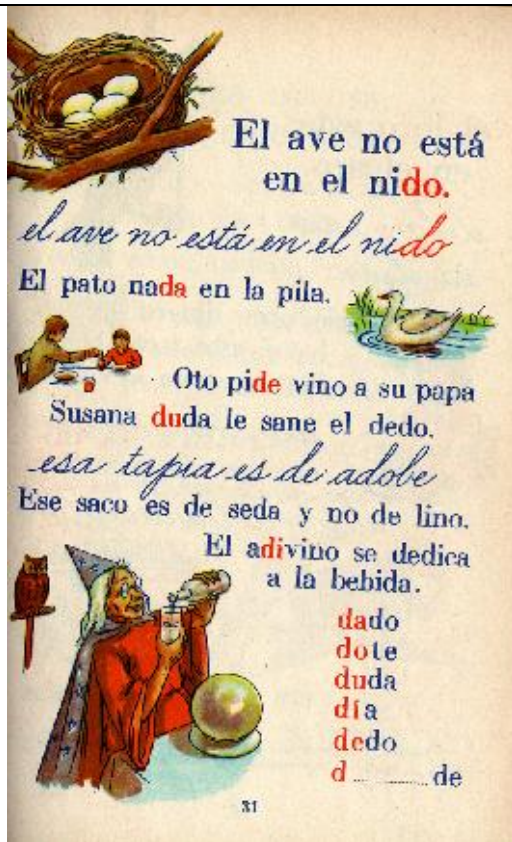 El ave no está
en el nido.
el ave no está en el nido
El pato nada en la pila.
Oto pide vino a su papa
Susana duda le sane el dedo.
esa tapia es de adobe
Ese saco es de seda y no de lino.
El adivino se dedica
a la bebida.
dado
dote
duda
día
dedo
d ........... de
31